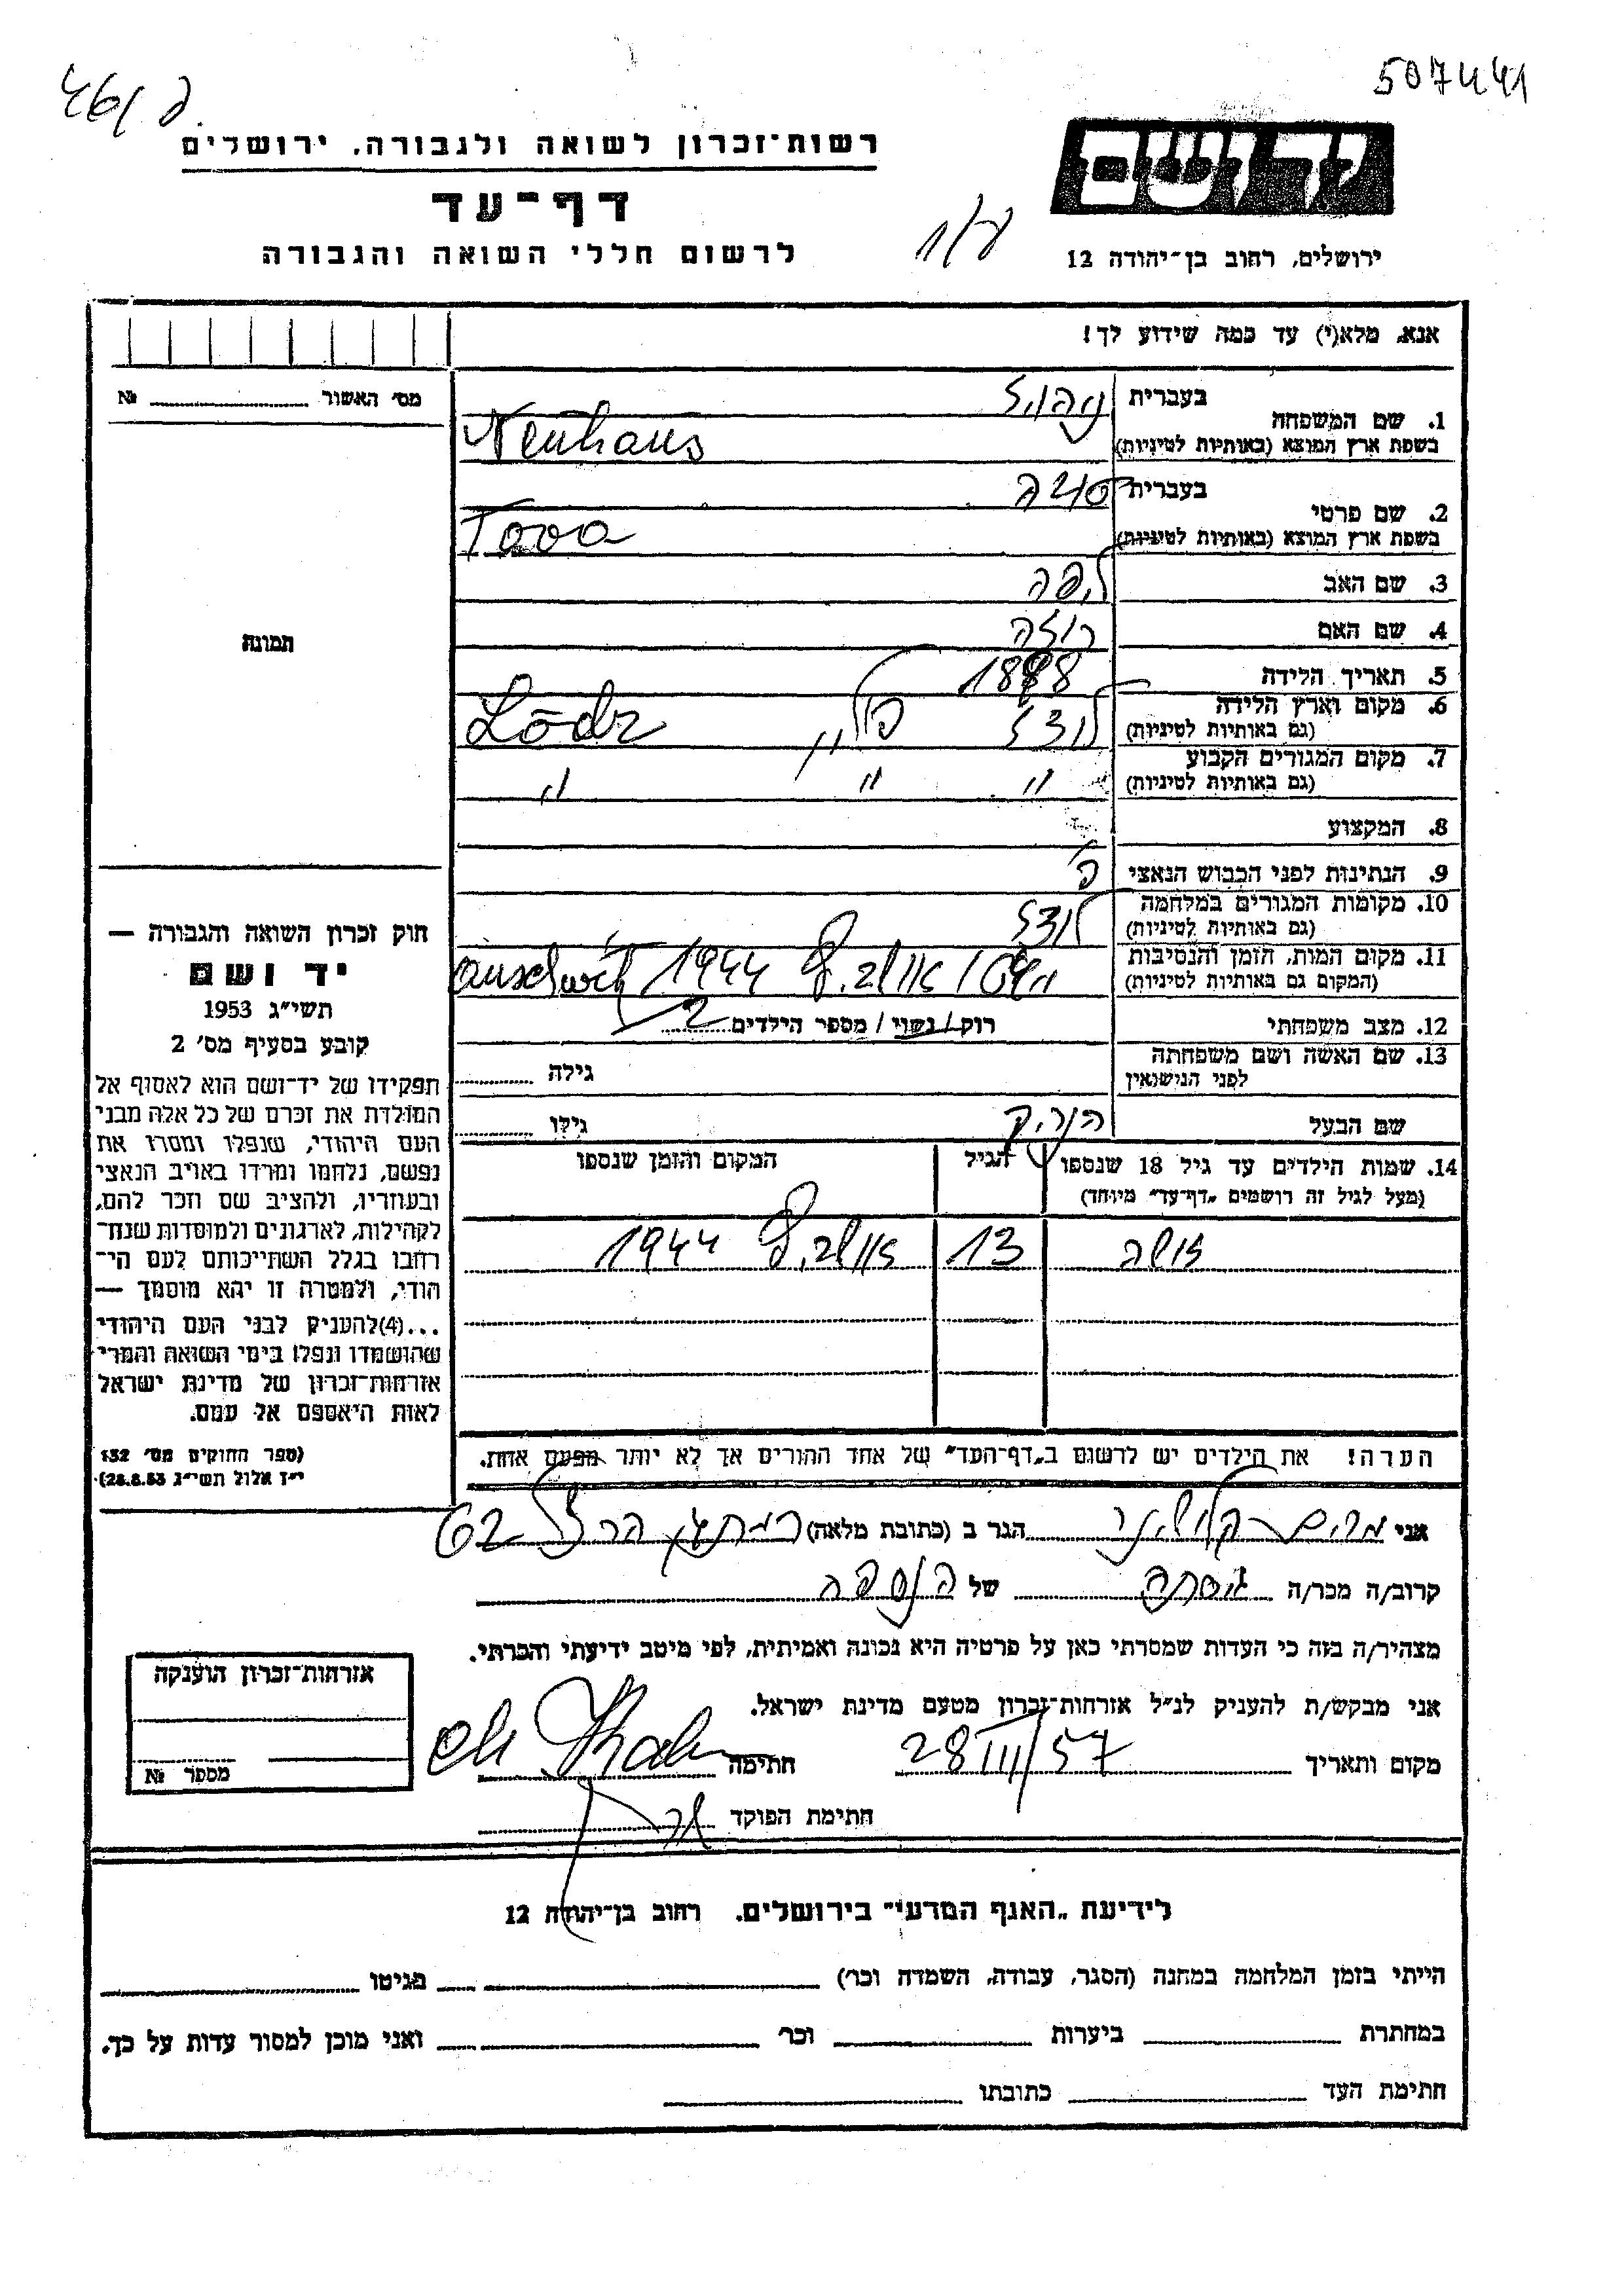 507441
רשות־זכרון לשואה ולגבורה, ירושלים
דף־עד
לרשום חללי השואה והגבורה
ידושם
ירושלים, רחוב בן־יהודה 12
אנא, מלא(י) עד כמה שידוע לך!
מס׳ האשור № 
תמונה
1. שם המשפחה
בעברית
בשפת ארץ המוצא (באותיות לטיניות) Neuhaus
2. שם פרטי
בעברית טובה
בשפת ארץ המוצא (באותיות לטיניות) Tova
3. שם האב ליפה
4. שם האם רוזה
5. תאריך הלידה
6. מקום וארץ הלידה לודז׳ פולין Lōdz
(גם באותיות לטיניות)
7. מקום המגורים הקבוע " " "
(גם באותיות לטיניות)
8. המקצוע
9. הנתינות לפני הכבוש הנאצי פ׳
10. מקומות המגורים במלחמה לודז
(גם באותיות לטיניות)
11. מקום המות, הזמן והנסיבות 1944
(המקום גם באותיות לטיניות)
12. מצב משפחתי רוק/נשוי/ מספר הילדים 2
13. שם האשה ושם משפחתה
לפני הנישואין
גילה
שם הבעל
גילו
14. שמות הילדים עד גיל 18 שנספו
(מעל לגיל זה רושמים „דף־עד״ מיוחד)
הגיל
המקום והזמן שנספו
13 1944
הערה! את הילדים יש לרשום ב„דף־העד״ של אחד ההורים אך לא יותר מפעם אחת.
חוק זכרון השואה והגבורה —
יד ושם
תשי״ג 1953
קובע בסעיף מס׳ 2
תפקידו של יד־ושם הוא לאסוף אל
המולדת את זכרם של כל אלה מבני
העם היהודי, שנפלו ומסרו את
נפשם, נלחמו ומרדו באויב הנאצי
ובעוזריו, ולהציב שם וזכר להם,
לקהילות, לארגונים ולמוסדות שנח־
רבו בגלל השתייכותם לעם הי־
הודי, ולמטרה זו יהא מוסמך —
...(4)להעניק לבני העם היהודי
שהושמדו ונפלו בימי השואה והמרי
אזרחות־זכרון של מדינת ישראל
לאות היאספם אל עמם.
(ספר החוקים מס׳ 132
י״ז אלול תשי״ג 28.8.53)
אני מרים הגר ב (כתובת מלאה) רמתגן הרצל 62
קרוב/ה מכר/ה גיסתה של הנספה
מצהיר/ה בזה כי העדות שמסרתי כאן על פרטיה היא נכונה ואמיתית, לפי מיטב ידיעתי והכרתי.
אני מבקש/ת להעניק לנ״ל אזרחות־זכרון מטעם מדינת ישראל.
מקום ותאריך 28 III/57 חתימה
חתימת הפוקד
אזרחות־זכרון הוענקה
מספר №
לידיעת „האגף המדעי״ בירושלים. רחוב בן־יהודה 12
הייתי בזמן המלחמה במחנה (הסגר, עבודה, השמדה וכר׳) בגיטו
במחתרת ביערות וכר׳ ואני מוכן למסור עדות על כך.
חתימת העד כתובתו